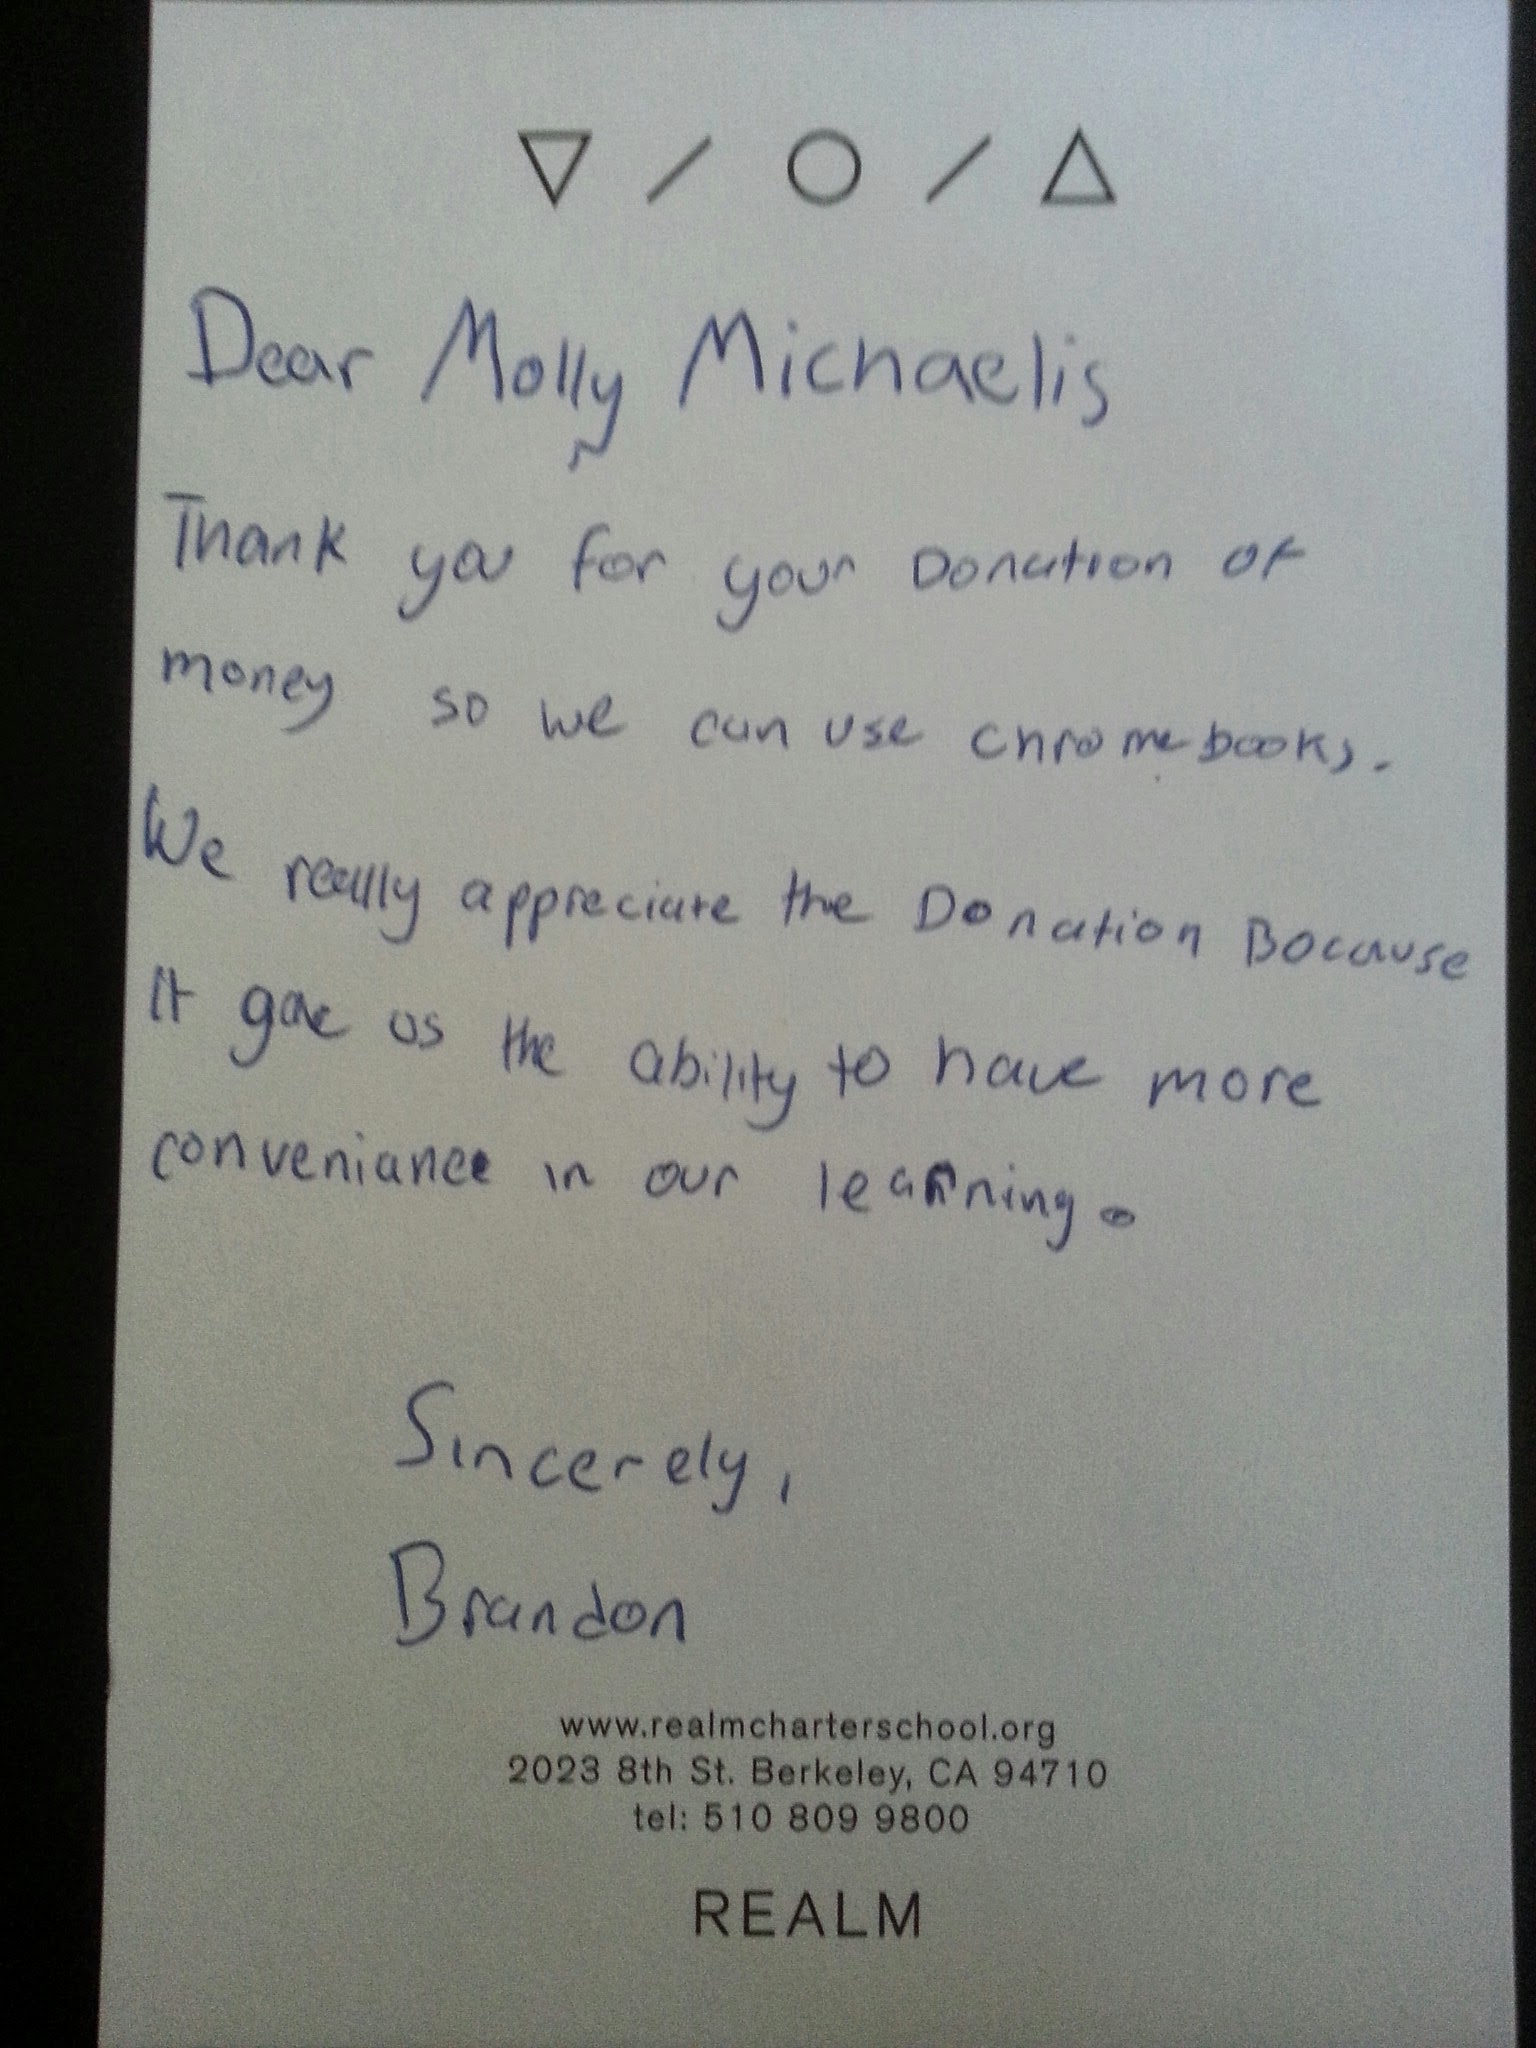 Dear Molly Michaelis
Thank you for your Donation of
money so we can use chromebooks.
We really appreciate the Donation Because
It gave us the ability to have more
conveniance in our learning.
Sincerely,
Brandon
www.realmcharterschool.org
2023 8th St. Berkeley, CA 94710
tel: 510 809 9800
REALM